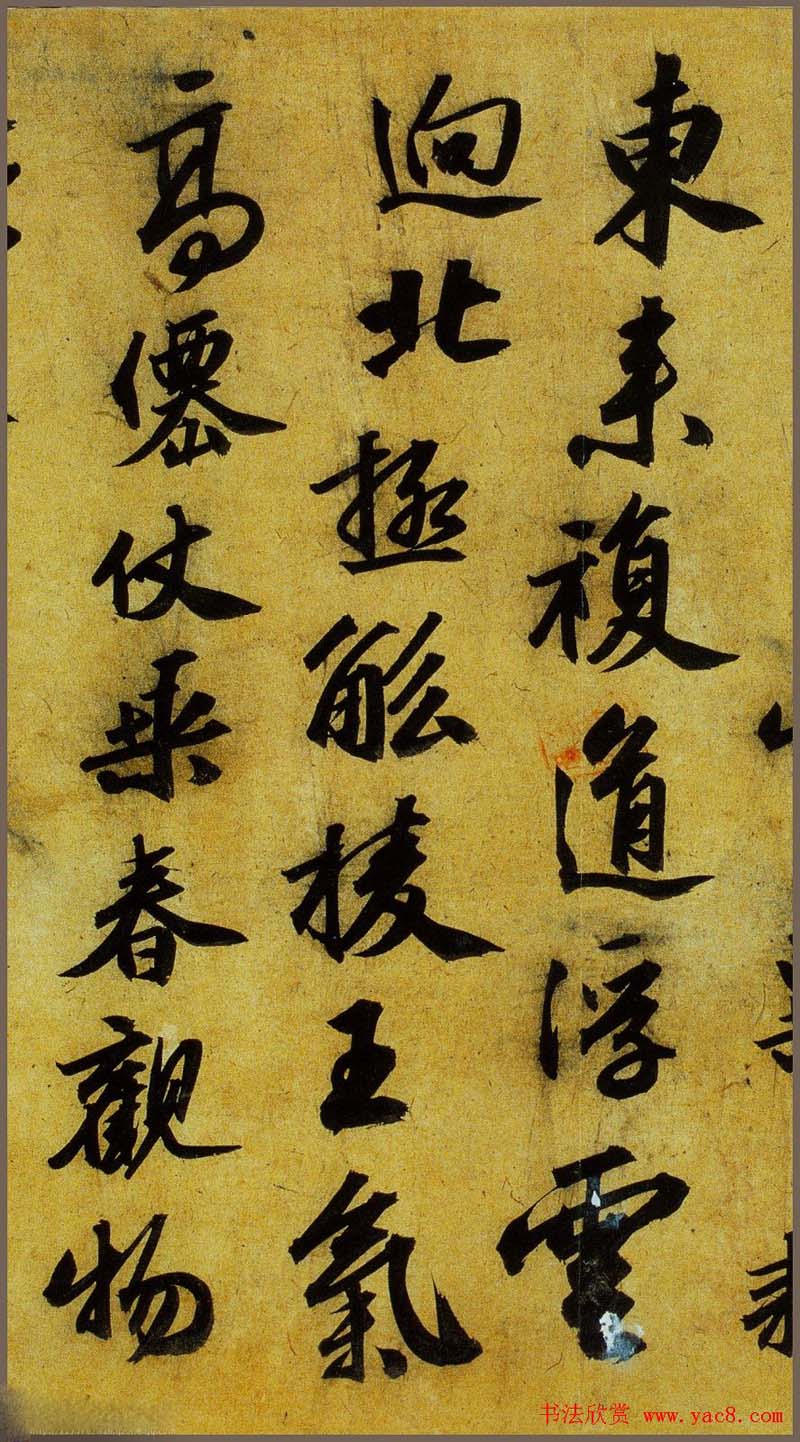 東来複道浮雲
迥北極觚稜王氣
高僊仗乘春觀物
书法欣赏 www.yac8.com